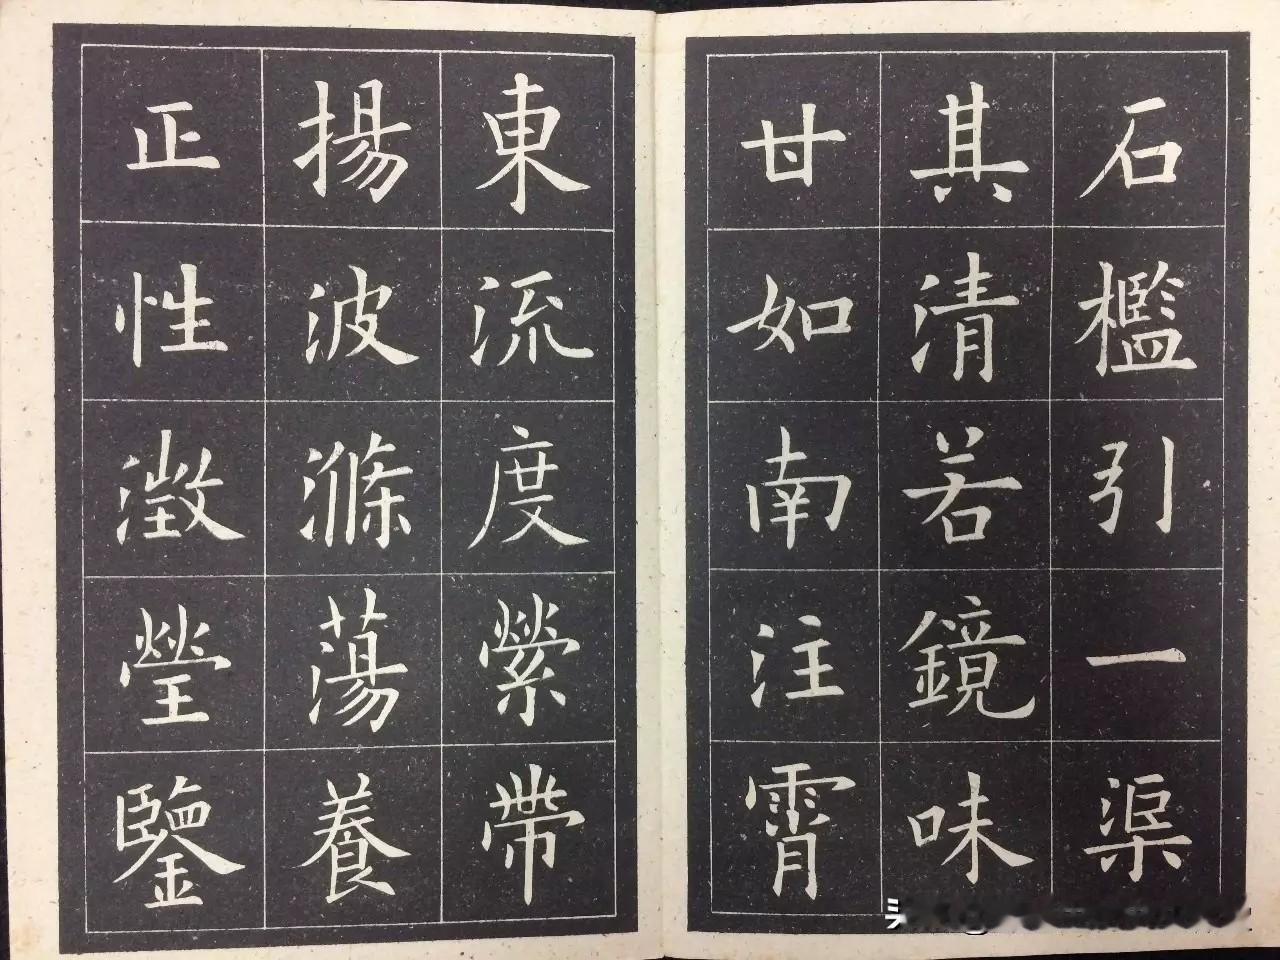 石檻引一渠
其清若鏡味
甘如南注霄
東流度縈帶
揚波滌蕩養
正性澂瑩鑒